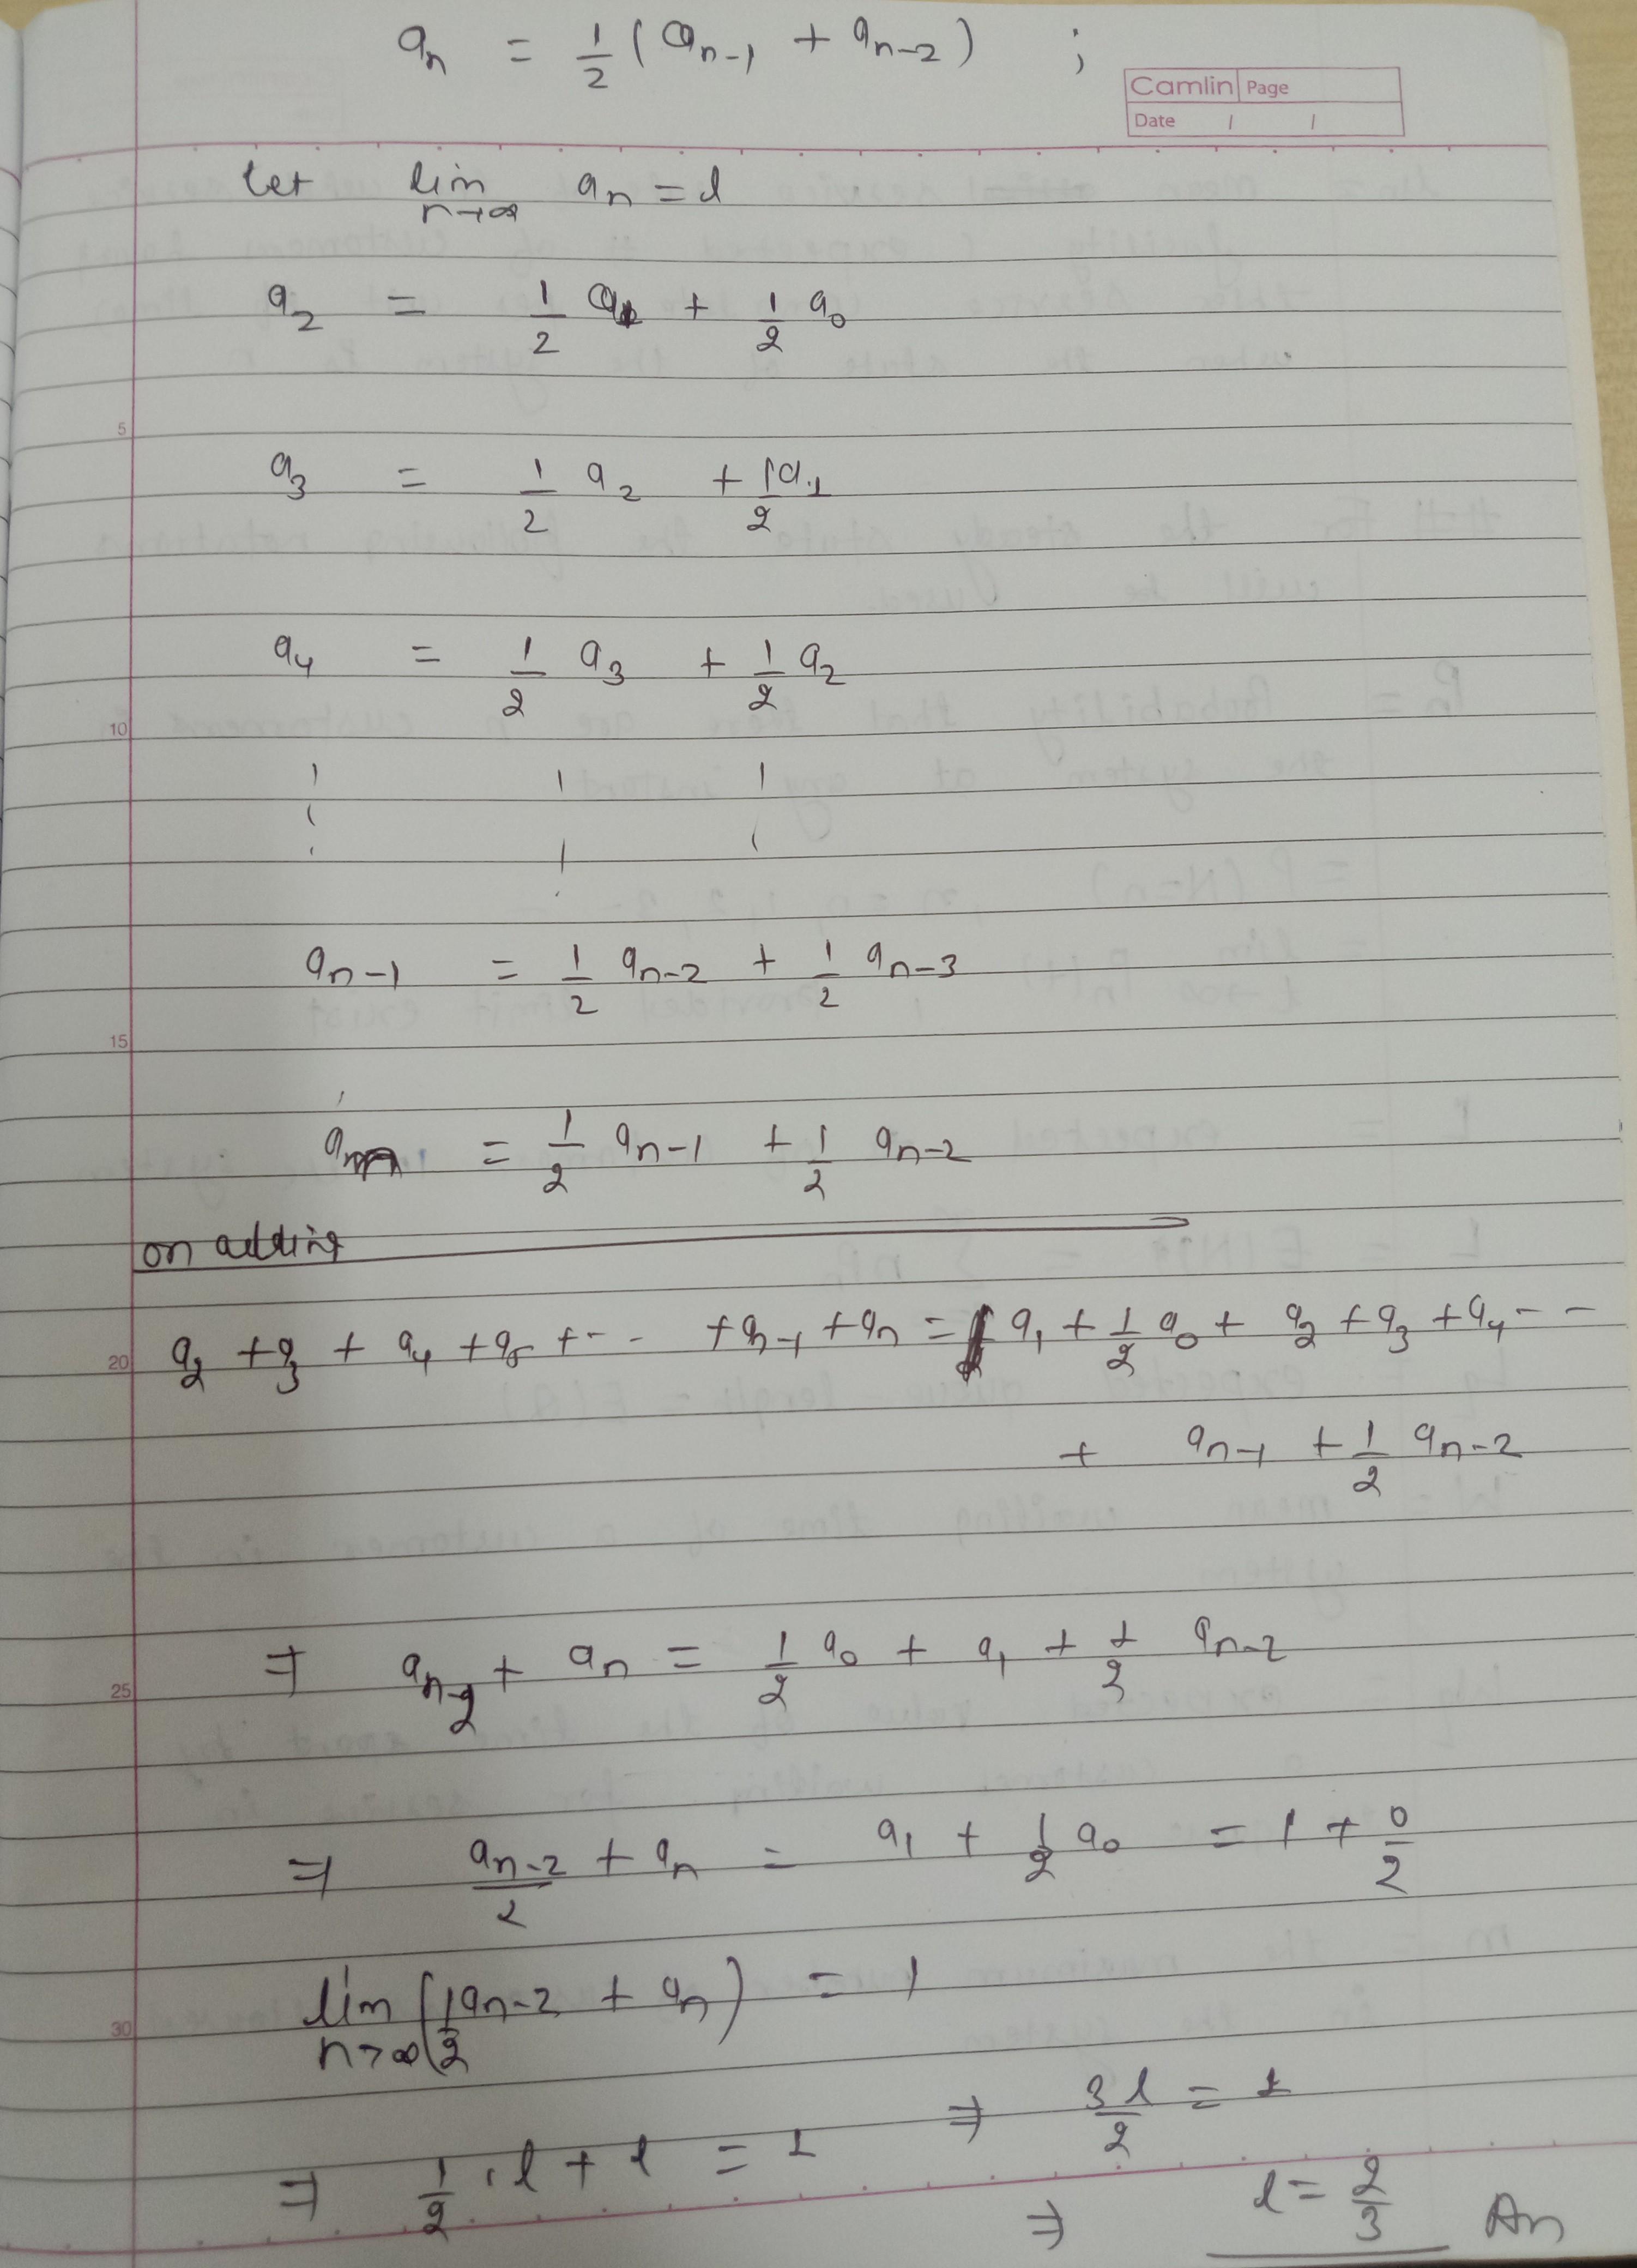 aₙ = 1/2 (aₙ₋₁ + aₙ₋₂) ;
Camlin Page
Date / /
Let lim n→∞ aₙ = l
a₂ = 1/2 a₁ + 1/2 a₀
5
a₃ = 1/2 a₂ + 1/2 a₁
a₄ = 1/2 a₃ + 1/2 a₂
10
aₙ₋₁ = 1/2 aₙ₋₂ + 1/2 aₙ₋₃
15
aₙ = 1/2 aₙ₋₁ + 1/2 aₙ₋₂
on adding
20 a₂ + a₃ + a₄ + a₅ + - - + aₙ₋₁ + aₙ = a₁ + 1/2 a₀ + a₂ + a₃ + a₄ - -
+ aₙ₋₁ + 1/2 aₙ₋₂
25 ⇒ aₙ₋₂ + aₙ = 1/2 a₀ + a₁ + 1/2 aₙ₋₂
⇒ aₙ₋₂/2 + aₙ = a₁ + 1/2 a₀ = 1 + 0/2
30 lim n→∞ (1/2 aₙ₋₂ + aₙ) = 1
⇒ 1/2 . l + l = 1 ⇒ 3l/2 = 1
⇒ l = 2/3 An